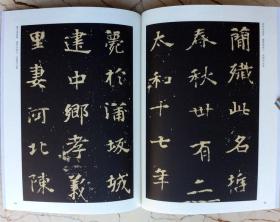 簡殲此名
春秋卌有二
太和十七年
薨於蒲坂城
建中鄉孝義
里妻河北陳